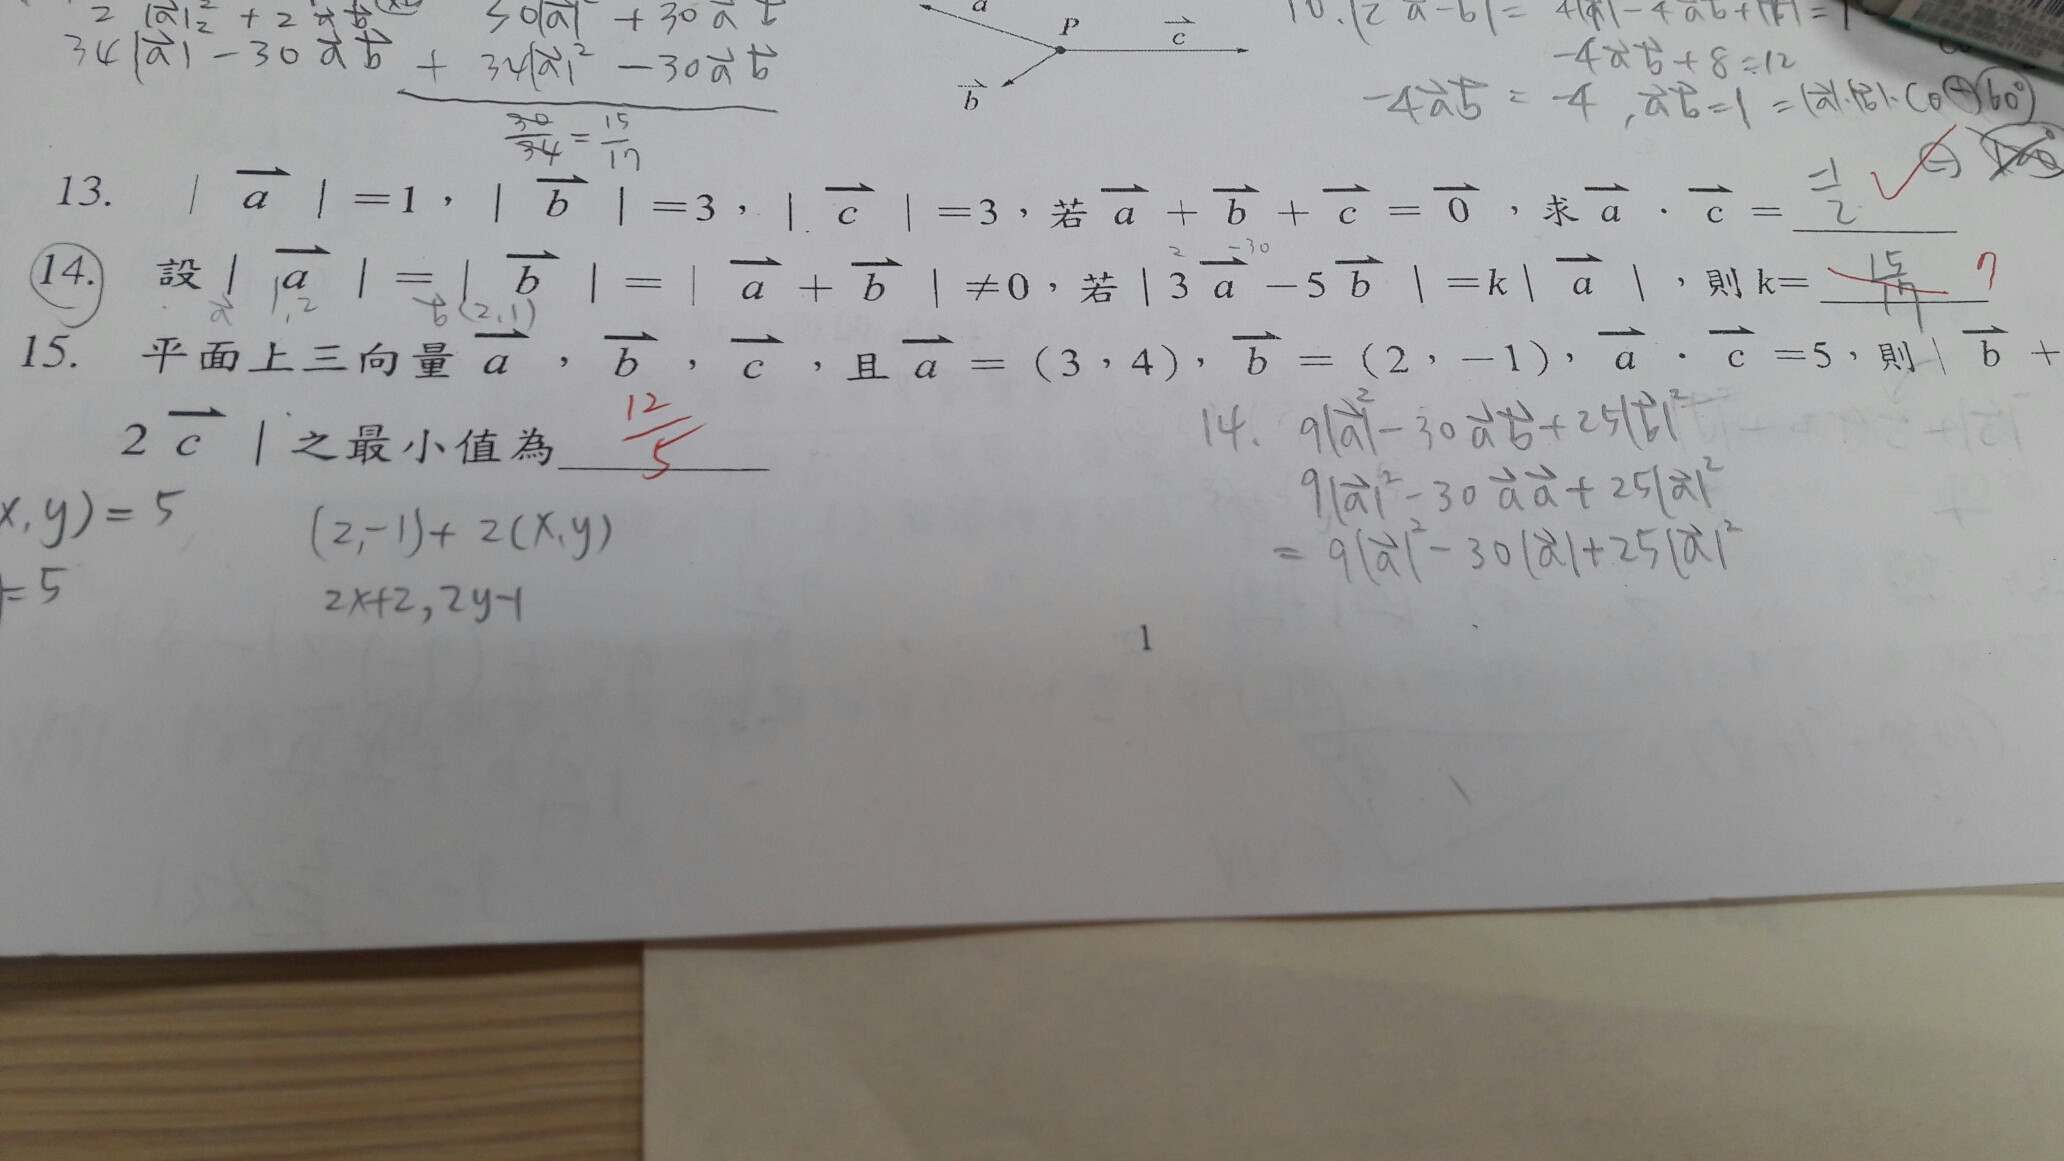 2|a⃗|² + 2 a⃗ b⃗
30|a⃗|² + 30 a⃗ b⃗
34|a⃗|² - 30 a⃗ b⃗
+ 34|a⃗|² - 30 a⃗ b⃗
30/34 = 15/17
a
P
c⃗
b⃗
10. |2a⃗-b⃗| = 4|a⃗|-4a⃗b⃗+|b⃗|=1
-4a⃗b⃗+8=12
-4a⃗b⃗ = -4, a⃗b⃗=1 = |a⃗|·|b⃗|·cosθ 60°
13. |a⃗|=1,|b⃗|=3,|c⃗|=3,若a⃗+b⃗+c⃗=0⃗,求a⃗·c⃗= -1/2
14. 設|a⃗|=|b⃗|=|a⃗+b⃗|≠0,若|3a⃗-5b⃗|=k|a⃗|,則k= 15/17 7
2 -30
a⃗ 1,2 b⃗(2,1)
15. 平面上三向量a⃗,b⃗,c⃗,且a⃗=(3,4),b⃗=(2,-1),a⃗·c⃗=5,則|b⃗+
2c⃗|之最小值為 12/5
x,y)=5
=5
(2,-1)+2(x,y)
2x+2,2y-1
14. 9|a⃗|²-30a⃗b⃗+25|b⃗|²
9|a⃗|²-30a⃗a⃗+25|a⃗|²
=9|a⃗|²-30|a⃗|+25|a⃗|²
1